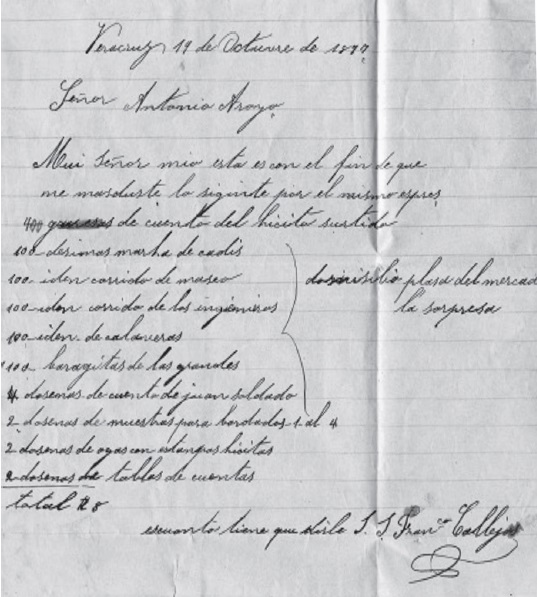 Veracruz 19 de Octuvre de 1897
Señor Antonio Aroyo
Mui Señor mio esta es con el fin de que
me mande uste lo siginte por el mismo espres
400 de cuento del hicito surtido
100 desimas marha de cadis
100 iden corrido de maseo
100 iden corrido de los ingenieros
100 iden. de calaveras
100 baragitas de las grandes
4 dosenas de cuento de juan soldado
2 dosenas de muestras para bordados 1 al 4
2 dosenas de ogas con estanpas hicitas
2 dosenas de tablas de cuentas
total $ 8
plasa del mercado
la sorpresa
es cuanto tiene que disile S. S. Franco Callejas